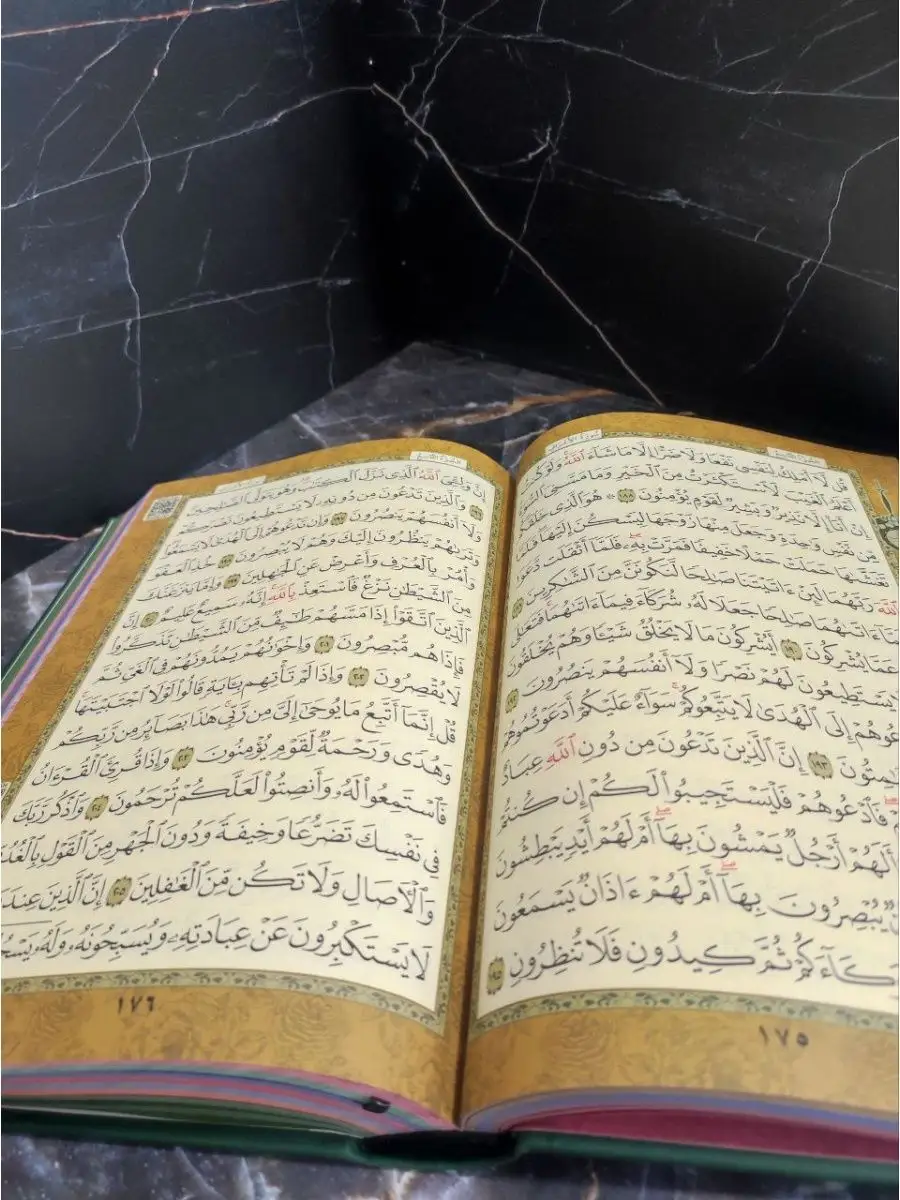 سورة الأعراف
الجزء التاسع
قُل لَّآ أَمْلِكُ لِنَفْسِى نَفْعًا وَلَا ضَرًّا إِلَّا مَا شَآءَ ٱللَّهُ وَلَوْ
أَعْلَمُ ٱلْغَيْبَ لَٱسْتَكْثَرْتُ مِنَ ٱلْخَيْرِ وَمَا مَسَّنِىَ ٱلسُّوٓءُ
إِنْ أَنَا۠ إِلَّا نَذِيرٌ وَبَشِيرٌ لِّقَوْمٍ يُؤْمِنُونَ ١٨٨ ۞ هُوَ ٱلَّذِى خَلَقَكُم
مِّن نَّفْسٍ وَٰحِدَةٍ وَجَعَلَ مِنْهَا زَوْجَهَا لِيَسْكُنَ إِلَيْهَا فَلَمَّا
تَغَشَّىٰهَا حَمَلَتْ حَمْلًا خَفِيفًا فَمَرَّتْ بِهِۦ فَلَمَّآ أَثْقَلَت دَّعَوَا
ٱللَّهَ رَبَّهُمَا لَئِنْ ءَاتَيْتَنَا صَٰلِحًا لَّنَكُونَنَّ مِنَ ٱلشَّٰكِرِينَ ١٨٩
ءَاتَىٰهُمَا صَٰلِحًا جَعَلَا لَهُۥ شُرَكَآءَ فِيمَآ ءَاتَىٰهُمَا فَتَعَٰلَى
عَمَّا يُشْرِكُونَ ١٩٠ أَيُشْرِكُونَ مَا لَا يَخْلُقُ شَيْـًٔا وَهُمْ يُخْلَقُونَ
يَسْتَطِيعُونَ لَهُمْ نَصْرًا وَلَآ أَنفُسَهُمْ يَنصُرُونَ ١٩٢
تَدْعُوهُمْ إِلَى ٱلْهُدَىٰ لَا يَتَّبِعُوكُمْ سَوَآءٌ عَلَيْكُمْ أَدَعَوْتُمُوهُمْ
صَٰمِتُونَ ١٩٣ إِنَّ ٱلَّذِينَ تَدْعُونَ مِن دُونِ ٱللَّهِ عِبَادٌ
فَٱدْعُوهُمْ فَلْيَسْتَجِيبُوا۟ لَكُمْ إِن كُنتُمْ
أَلَهُمْ أَرْجُلٌ يَمْشُونَ بِهَآ أَمْ لَهُمْ أَيْدٍ يَبْطِشُونَ
يُبْصِرُونَ بِهَآ أَمْ لَهُمْ ءَاذَانٌ يَسْمَعُونَ
شُرَكَآءَكُمْ ثُمَّ كِيدُونِ فَلَا تُنظِرُونِ ١٩٥
١٧٥
الجزء التاسع
إِنَّ وَلِـِّۧىَ ٱللَّهُ ٱلَّذِى نَزَّلَ ٱلْكِتَٰبَ وَهُوَ يَتَوَلَّى ٱلصَّٰلِحِينَ
١٩٦ وَٱلَّذِينَ تَدْعُونَ مِن دُونِهِۦ لَا يَسْتَطِيعُونَ نَصْرَكُمْ
وَلَآ أَنفُسَهُمْ يَنصُرُونَ ١٩٧ وَإِن تَدْعُوهُمْ إِلَى ٱلْهُدَىٰ لَا يَسْمَعُوا۟
وَتَرَىٰهُمْ يَنظُرُونَ إِلَيْكَ وَهُمْ لَا يُبْصِرُونَ ١٩٨ خُذِ ٱلْعَفْوَ
وَأْمُرْ بِٱلْعُرْفِ وَأَعْرِضْ عَنِ ٱلْجَٰهِلِينَ ١٩٩ وَإِمَّا يَنزَغَنَّكَ
مِنَ ٱلشَّيْطَٰنِ نَزْغٌ فَٱسْتَعِذْ بِٱللَّهِ إِنَّهُۥ سَمِيعٌ عَلِيمٌ ٢٠٠ إِنَّ
ٱلَّذِينَ ٱتَّقَوْا۟ إِذَا مَسَّهُمْ طَٰٓئِفٌ مِّنَ ٱلشَّيْطَٰنِ تَذَكَّرُوا۟
فَإِذَا هُم مُّبْصِرُونَ ٢٠١ وَإِخْوَٰنُهُمْ يَمُدُّونَهُمْ فِى ٱلْغَىِّ ثُمَّ
لَا يُقْصِرُونَ ٢٠٢ وَإِذَا لَمْ تَأْتِهِم بِـَٔايَةٍ قَالُوا۟ لَوْلَا ٱجْتَبَيْتَهَا
قُلْ إِنَّمَآ أَتَّبِعُ مَا يُوحَىٰٓ إِلَىَّ مِن رَّبِّى هَٰذَا بَصَآئِرُ مِن رَّبِّكُمْ
وَهُدًى وَرَحْمَةٌ لِّقَوْمٍ يُؤْمِنُونَ ٢٠٣ وَإِذَا قُرِئَ ٱلْقُرْءَانُ
فَٱسْتَمِعُوا۟ لَهُۥ وَأَنصِتُوا۟ لَعَلَّكُمْ تُرْحَمُونَ ٢٠٤ وَٱذْكُر رَّبَّكَ
فِى نَفْسِكَ تَضَرُّعًا وَخِيفَةً وَدُونَ ٱلْجَهْرِ مِنَ ٱلْقَوْلِ بِٱلْغُدُوِّ
وَٱلْـَٔاصَالِ وَلَا تَكُن مِّنَ ٱلْغَٰفِلِينَ ٢٠٥ إِنَّ ٱلَّذِينَ عِندَ
لَا يَسْتَكْبِرُونَ عَنْ عِبَادَتِهِۦ وَيُسَبِّحُونَهُۥ وَلَهُۥ
١٧٦